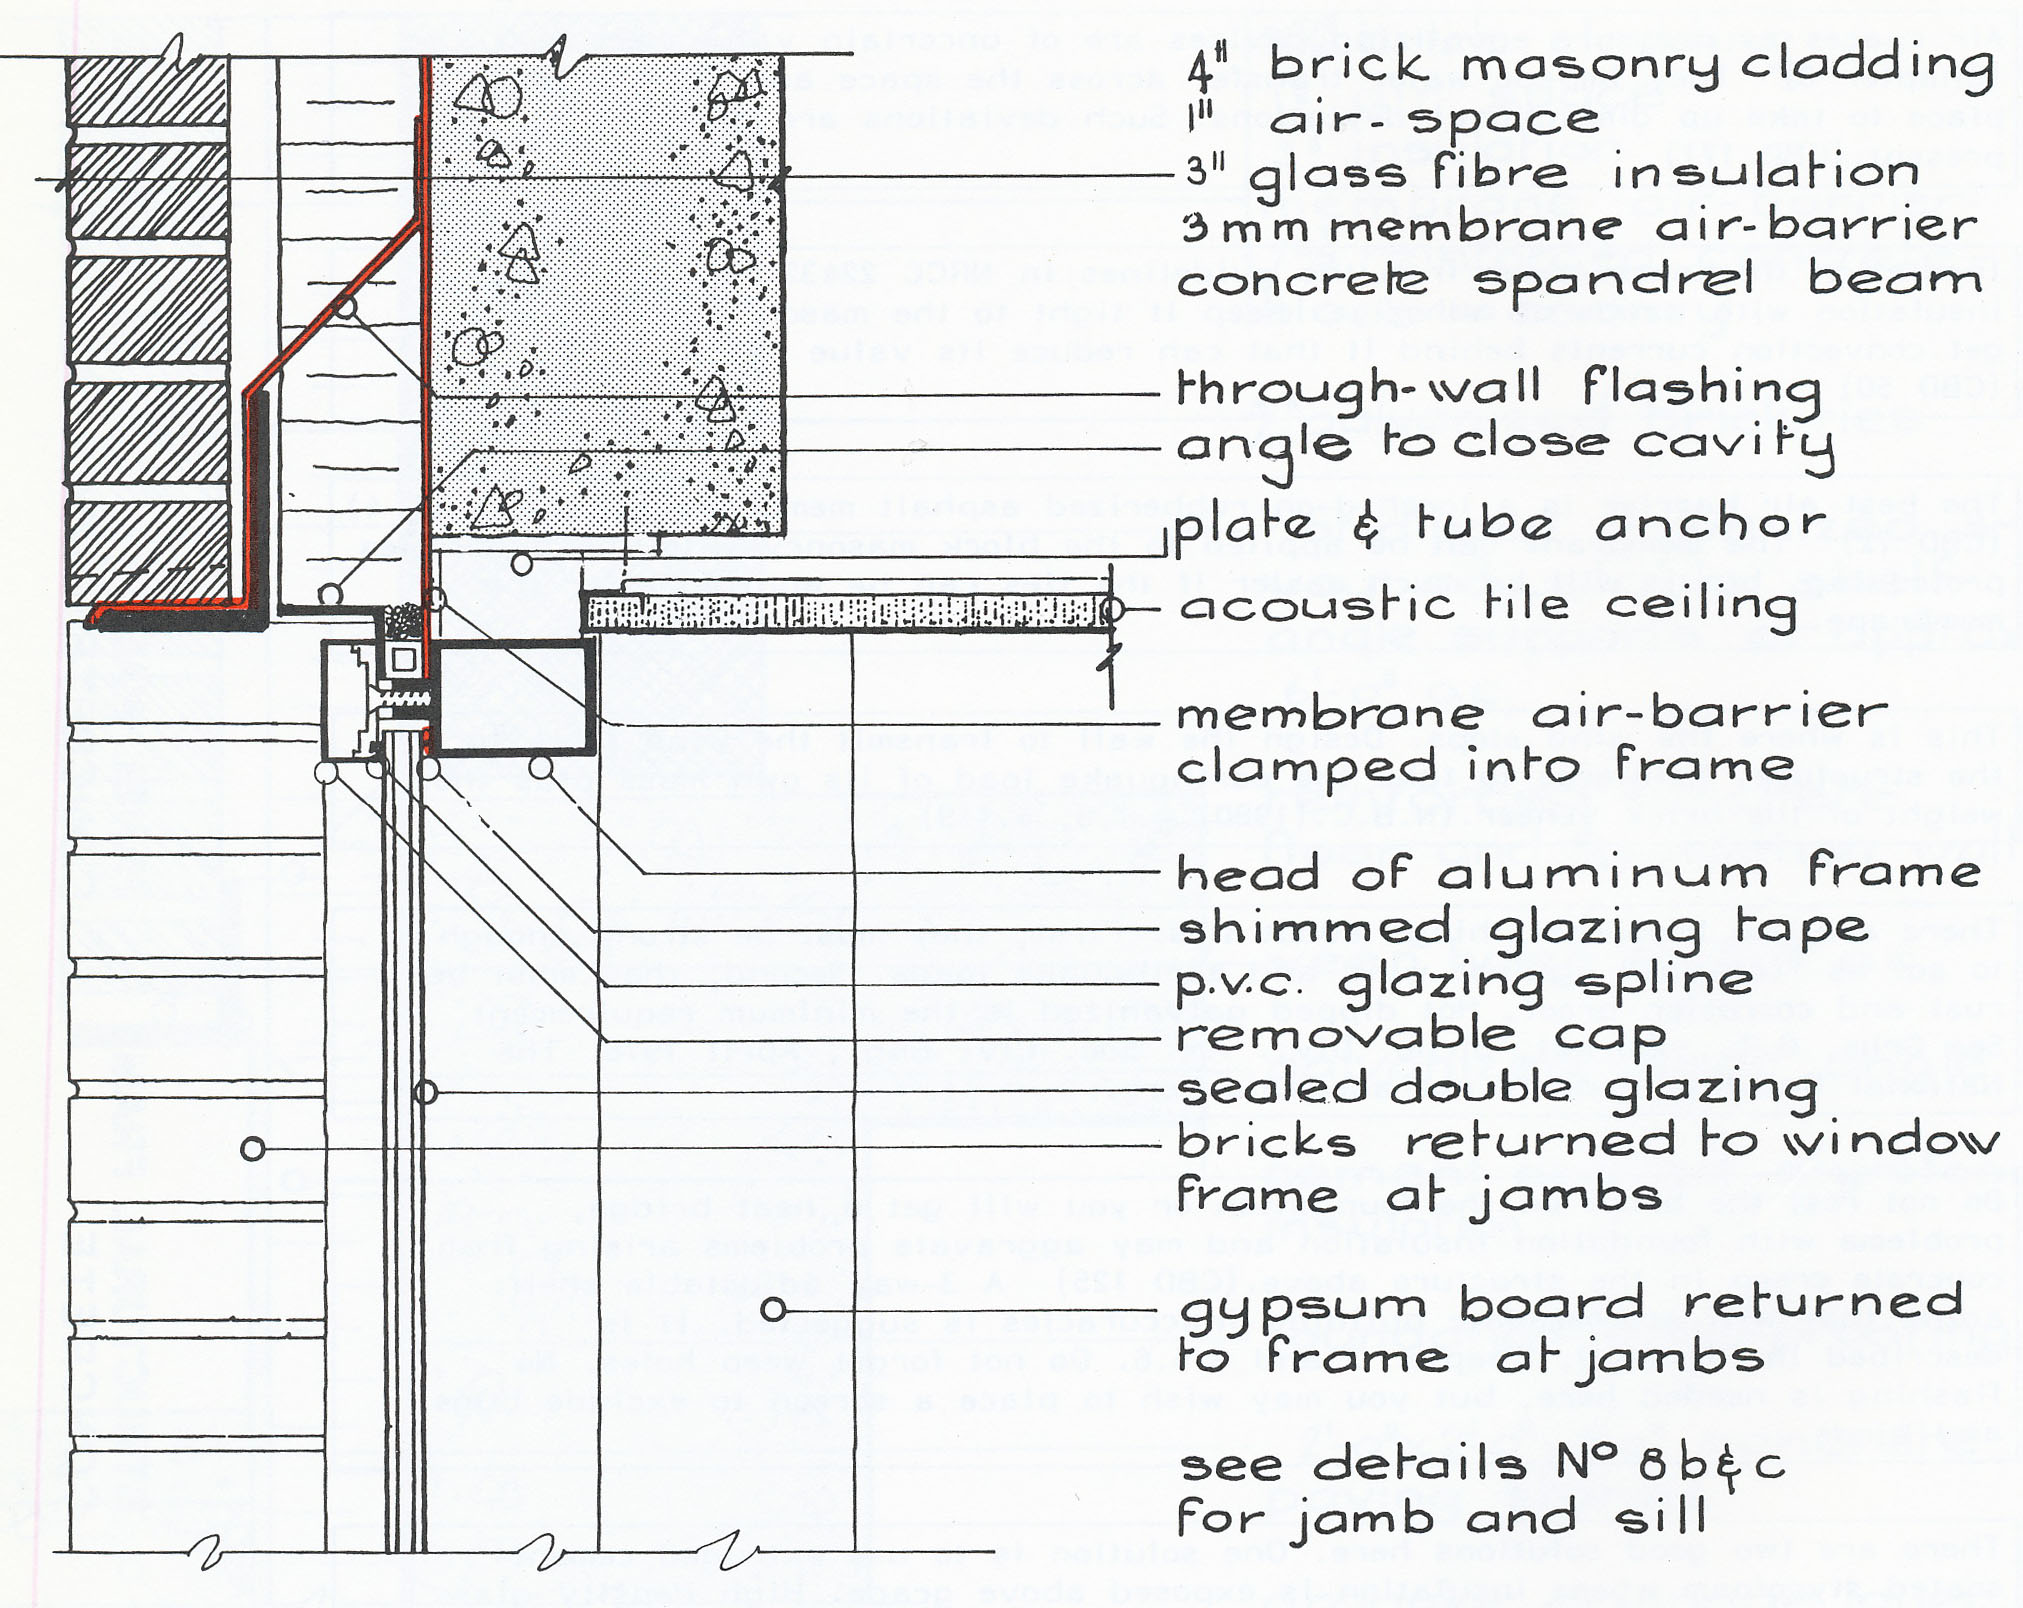 4" brick masonry cladding
1" air-space
3" glass fibre insulation
3mm membrane air-barrier
concrete spandrel beam
through-wall flashing
angle to close cavity
plate & tube anchor
acoustic tile ceiling
membrane air-barrier
clamped into frame
head of aluminum frame
shimmed glazing tape
p.v.c. glazing spline
removable cap
sealed double glazing
bricks returned to window
frame at jambs
gypsum board returned
to frame at jambs
see details Nº 8b&c
for jamb and sill